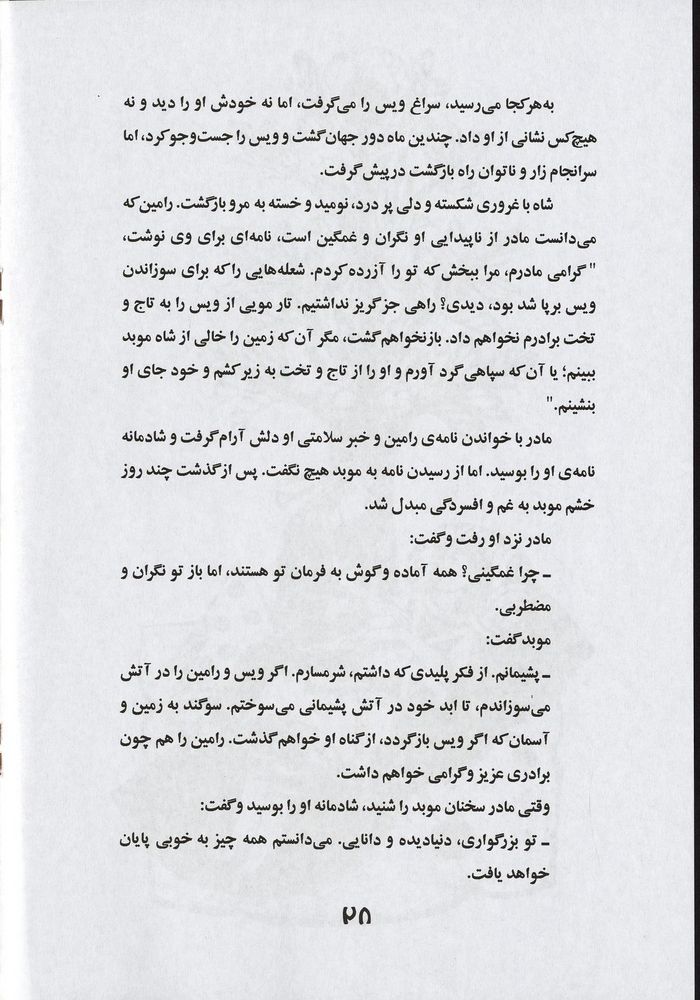 به‌هرکجا می‌رسید، سراغ ویس را می‌گرفت، اما نه خودش او را دید و نه
هیچ‌کس نشانی از او داد. چندین ماه دور جهان‌گشت و ویس را جست‌وجو کرد، اما
سرانجام زار و ناتوان راه بازگشت در پیش گرفت.
شاه با غروری شکسته و دلی پر درد، نومید و خسته به مرو بازگشت. رامین که
می‌دانست مادر از ناپیدایی او نگران و غمگین است، نامه‌ای برای وی نوشت،
"گرامی مادرم، مرا ببخش که تو را آزرده کردم. شعله‌هایی را که برای سوزاندن
ویس برپا شد بود، دیدی؟ راهی جز گریز نداشتیم. تار مویی از ویس را به تاج و
تخت برادرم نخواهم داد. بازنخواهم‌گشت، مگر آن‌که زمین را خالی از شاه موبد
ببینم؛ یا آن‌که سپاهی گرد آورم و او را از تاج و تخت به زیر کشم و خود جای او
بنشینم."
مادر با خواندن نامه‌ی رامین و خبر سلامتی او دلش آرام گرفت و شادمانه
نامه‌ی او را بوسید. اما از رسیدن نامه به موبد هیچ نگفت. پس از گذشت چند روز
خشم موبد به غم و افسردگی مبدل شد.
مادر نزد او رفت و گفت:
ـ چرا غمگینی؟ همه آماده و گوش به فرمان تو هستند، اما باز تو نگران و
مضطربی.
موبد گفت:
ـ پشیمانم. از فکر پلیدی که داشتم، شرمسارم. اگر ویس و رامین را در آتش
می‌سوزاندم، تا ابد خود در آتش پشیمانی می‌سوختم. سوگند به زمین و
آسمان که اگر ویس بازگردد، از گناه او خواهم گذشت. رامین را هم چون
برادری عزیز و گرامی خواهم داشت.
وقتی مادر سخنان موبد را شنید، شادمانه او را بوسید و گفت:
ـ تو بزرگواری، دنیادیده و دانایی. می‌دانستم همه چیز به خوبی پایان
خواهد یافت.
۲۸